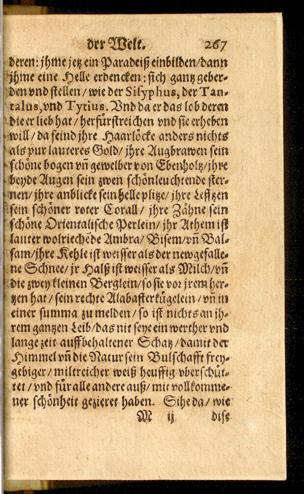 der Welt. 267
deren: jhme jetz ein Paradeiß einbilden/dann
jhme eine Helle erdencken: sich gantz geber-
den vnd stellen/ wie der Sisyphus, der Tan-
talus, vnd Tytius. Vnd da er das lob deren
die er lieb hat/ herfürstreichen vnd sie erheben
will/ da seind jhre Haarlöcke anders nichts
als pur lauteres Gold/ jhre Augbrawen sein
schöne bogen vñ gewelber von Ebenholtz/jhre
beyde Augen sein zwen schönleuchtende ster-
nen/ jhre anblicke sein helle plitze/ jhre Lefftzen
sein schöner roter Corall/ jhre Zähne sein
schöne Orientalische Perlein/ jhr Athem ist
lauter wolriechẽde Ambra/ Bisem/ vñ Bal-
sam/jhre Kehle ist weisser als der newgefalle-
ne Schnee/ jr Halß ist weisser als Milch/ vñ
die zwey kleinen Berglein/ so sie vor jrem her-
tzen hat/ sein rechte Alabasterkügelein/ vñ in
einer summa zu melden/ so ist nichts an jh-
rem gantzen Leib/ das nit seye ein werther vnd
lange zeit auffbehaltener Schatz/ damit der
Himmel vñ die Natur sein Bulschafft frey-
gebiger/ miltreicher weiß heuffig vberschüt-
tet/ vnd für alle andere auß/ mit vollkomme-
ner schönheit gezieret haben. Sihe da/ wie
M ij dise